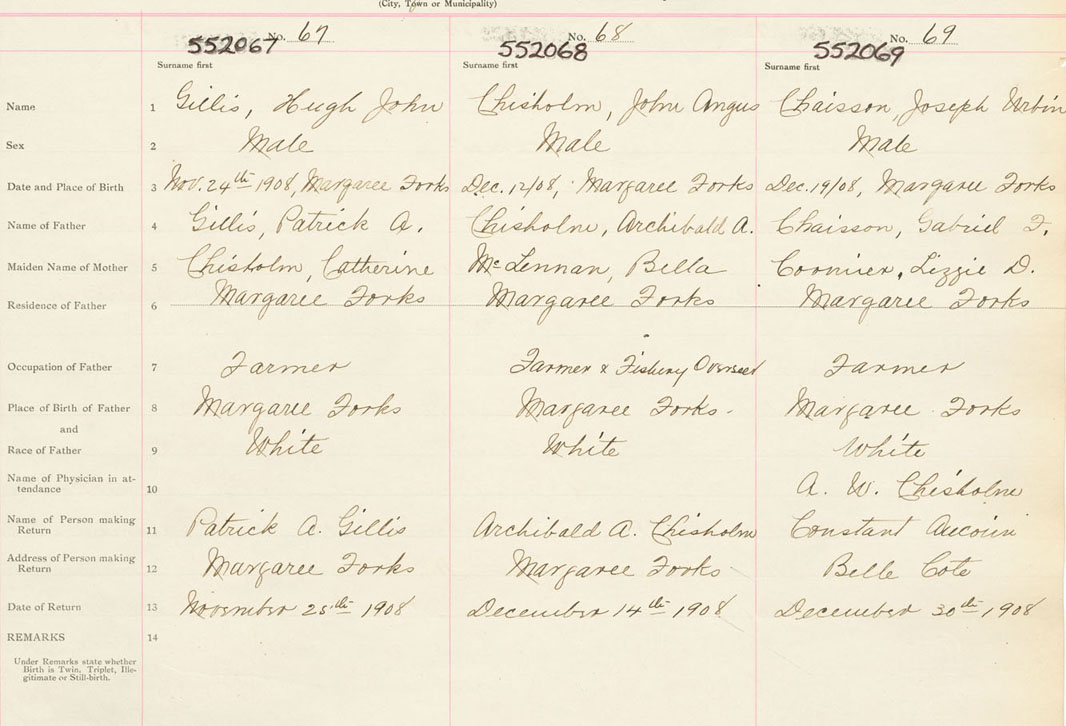 (City, Town or Municipality)
No. 67 No. 68 No. 69
552067 552068 552069
Surname first Surname first Surname first
Name 1 Gillis, Hugh John Chisholm, John Angus Chaisson, Joseph Urbin
Sex 2 Male Male Male
Date and Place of Birth 3 Nov. 24th 1908, Margaree Forks Dec. 12/08, Margaree Forks Dec. 19/08, Margaree Forks
Name of Father 4 Gillis, Patrick A. Chisholm, Archibald A. Chaisson, Gabriel F.
Maiden Name of Mother 5 Chisholm, Catherine McLennan, Bella Cormier, Lizzie D.
Residence of Father 6 Margaree Forks Margaree Forks Margaree Forks
Occupation of Father 7 Farmer Farmer & Fishery Overseer Farmer
Place of Birth of Father 8 Margaree Forks Margaree Forks. Margaree Forks
and
Race of Father 9 White White White
Name of Physician in at-
tendance 10 A. W. Chisholm
Name of Person making
Return 11 Patrick A. Gillis Archibald A. Chisholm Constant Aucoin
Address of Person making
Return 12 Margaree Forks Margaree Forks Belle Cote
Date of Return 13 November 25th 1908 December 14th 1908 December 30th 1908
REMARKS 14
Under Remarks state whether
Birth is Twin, Triplet, Ille-
gitimate or Still-birth.